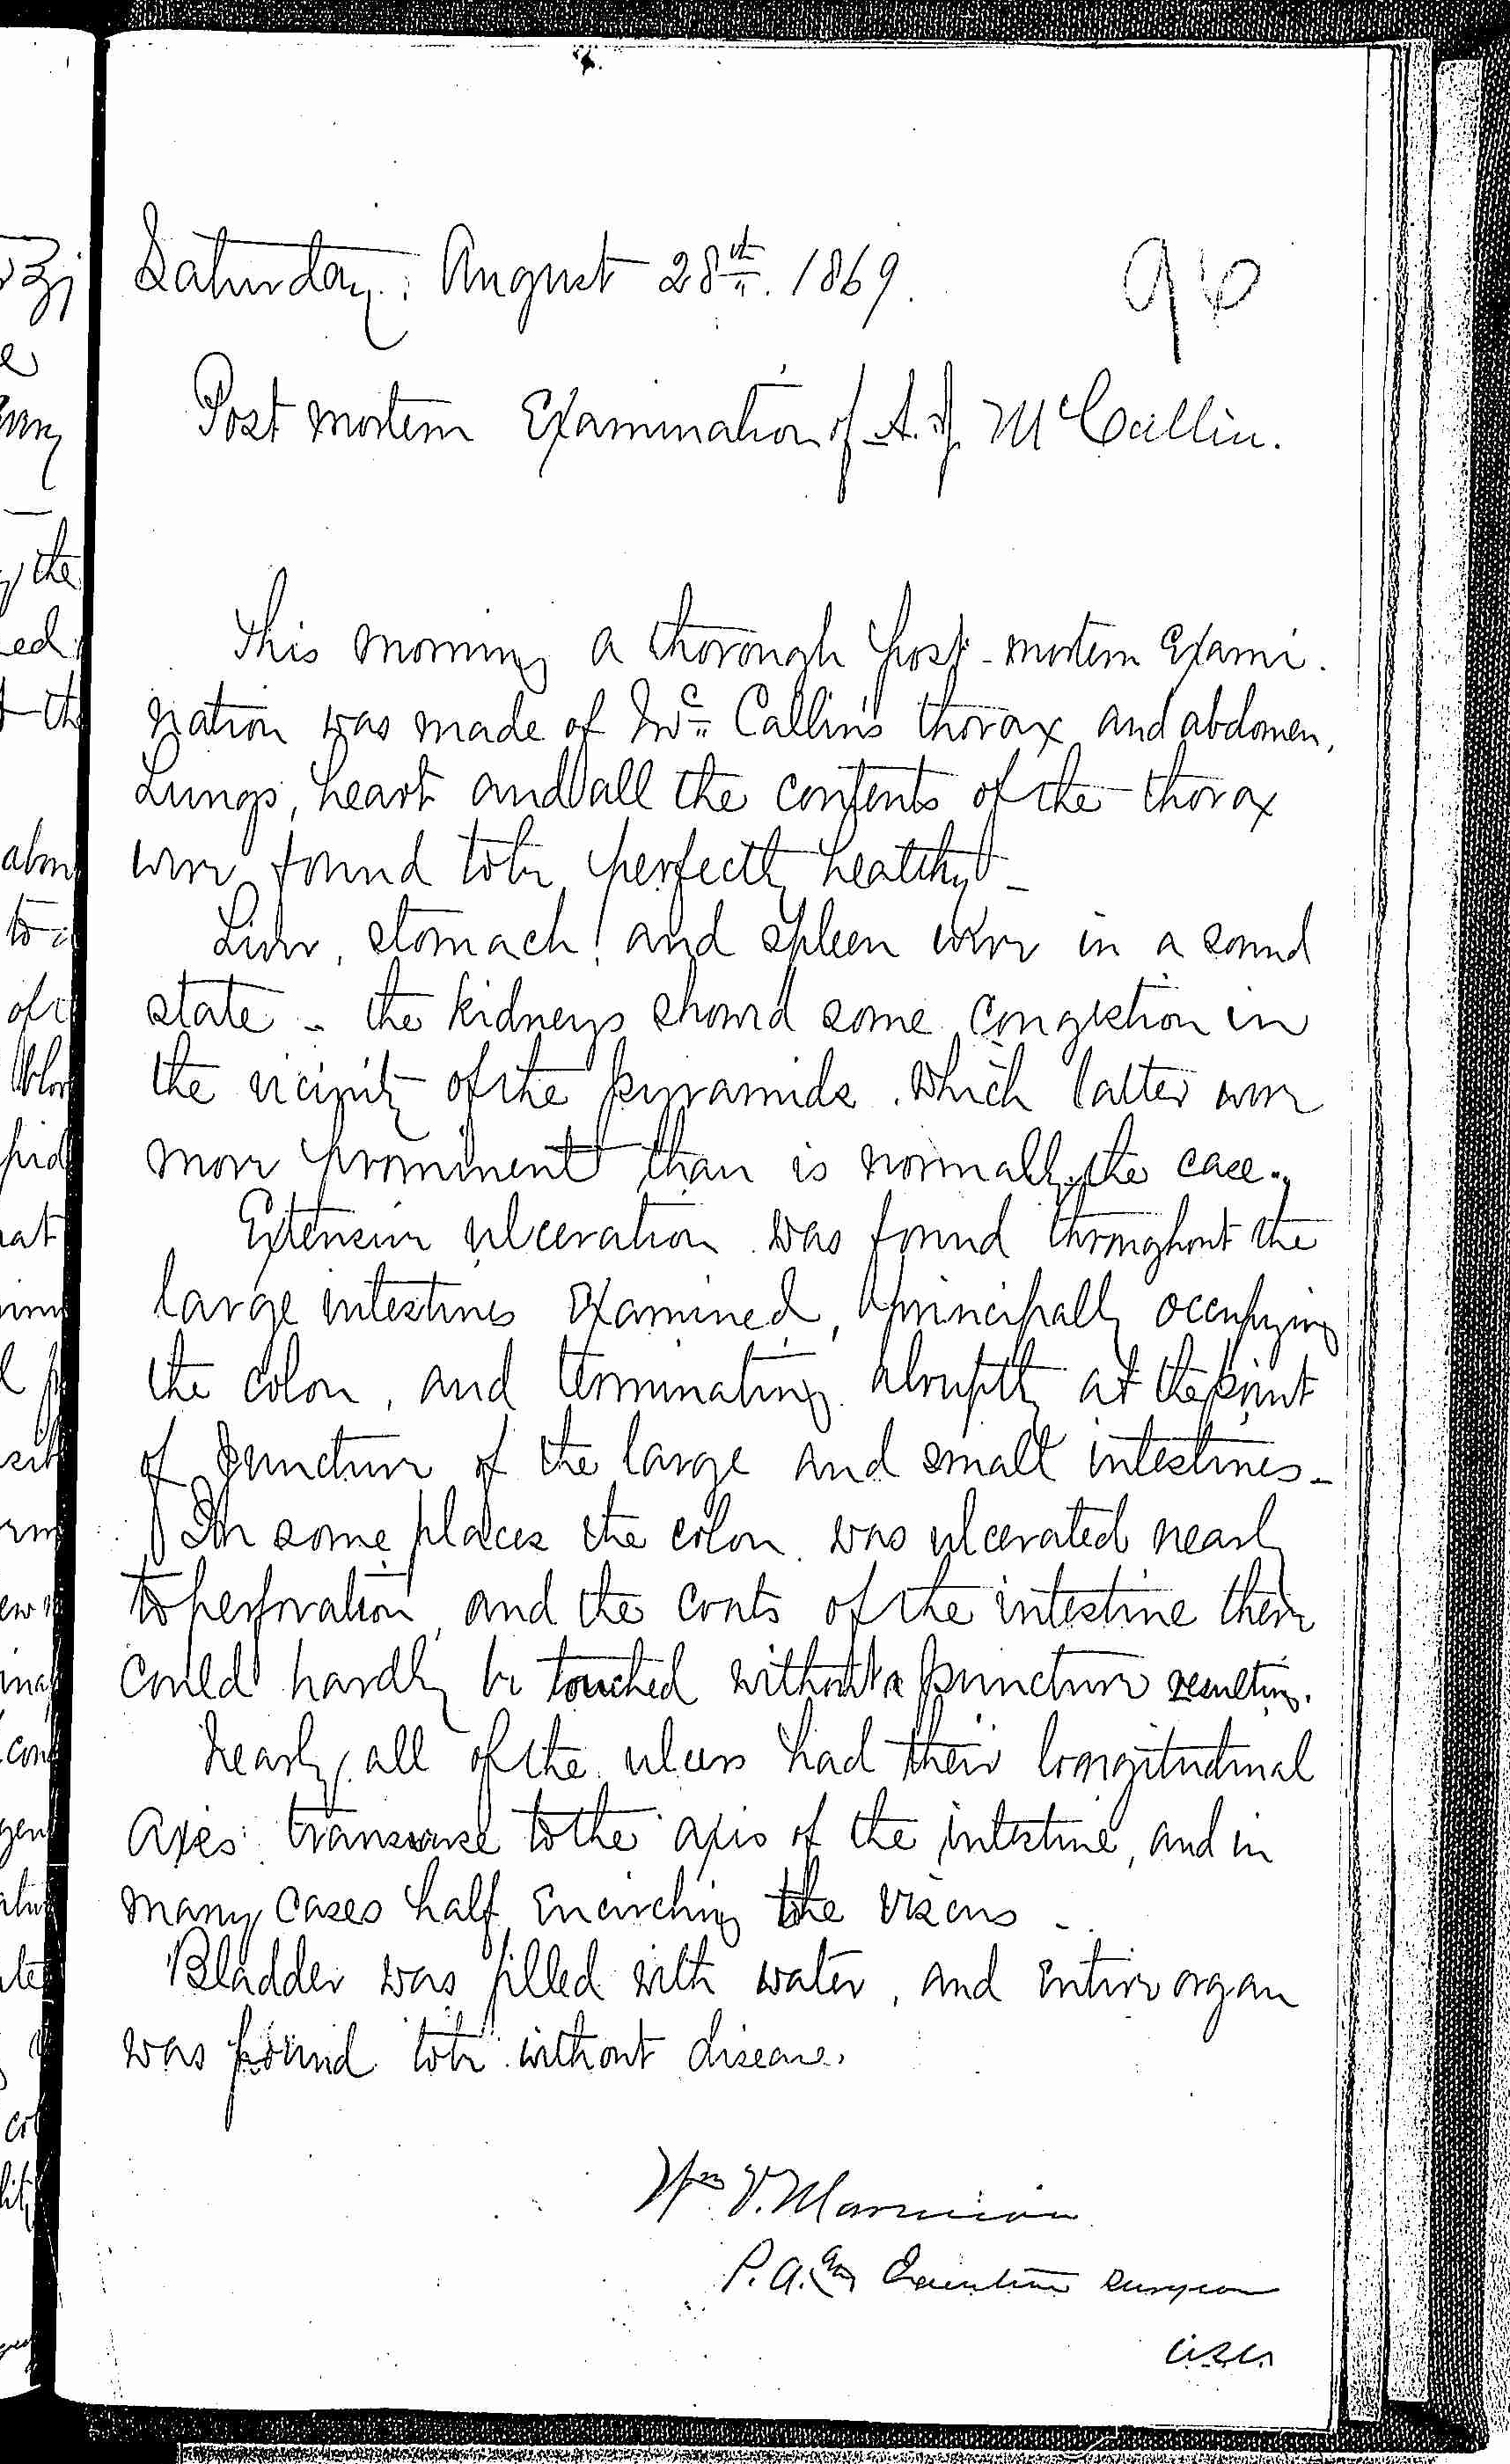 Saturday: August 28th. 1869.
96
Post mortem Examination of A. J. McCallin.
This morning a thorough post-mortem Exami-
nation was made of Mc. Callin's thorax and abdomen.
Lungs, heart and all the contents of the thorax
were found to be perfectly healthy -
Liver, stomach, and spleen were in a sound
state - the kidneys showed some congestion in
the vicinity of the pyramids. Which latter were
more prominent than is normally the case.
Extensive ulceration was found throughout the
large intestines Examined, principally occupying
the colon, and terminating abruptly at the point
of juncture of the large and small intestines -
In some places the colon was ulcerated nearly
to perforation, and the coats of the intestine there
could hardly be touched without a puncture resulting.
Nearly all of the ulcers had their longitudinal
Axes transverse to the axis of the intestine, and in
many cases half Encircling the viscus -
Bladder was filled with water, and entire organ
was found to be without disease.
Wm V. Marmion
P. A. Executive Surgeon
U.S.N.